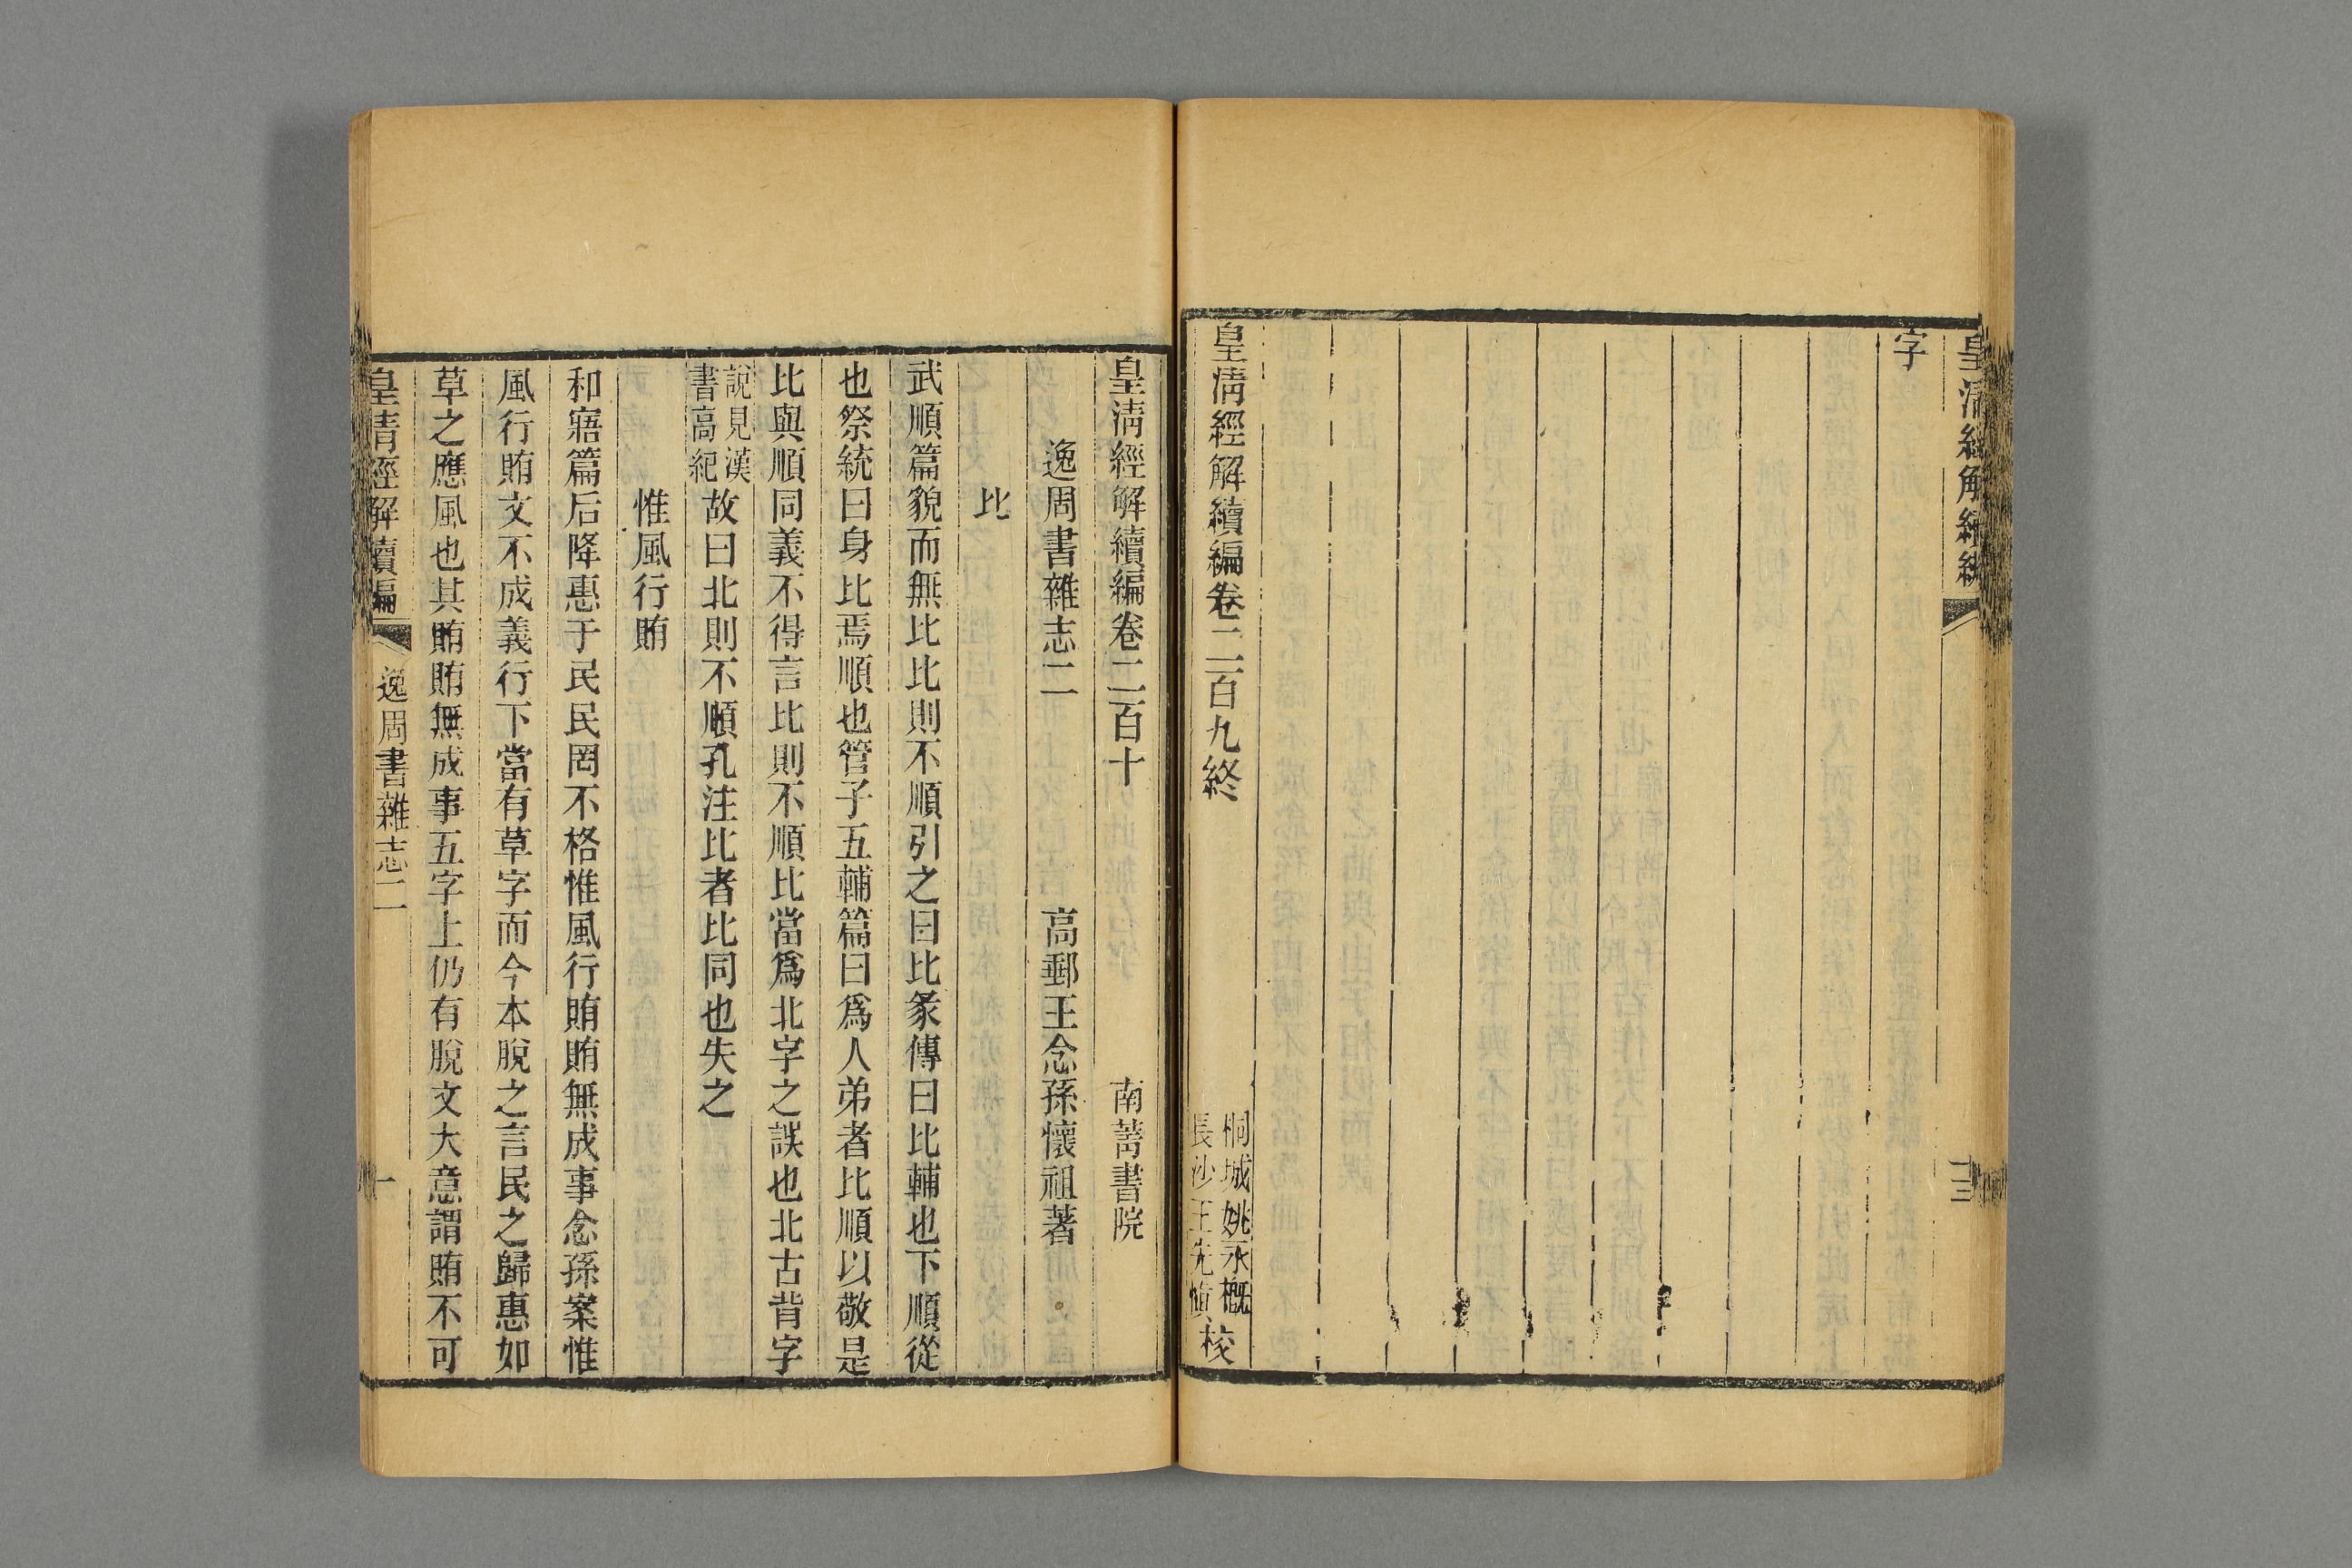 皇清經解續編
三
字
皇清經解續編卷二百九終
桐城姚永概
長沙王先慎校
皇清經解續編卷二百十
南菁書院
逸周書雜志二
高郵王念孫懷祖著
比
武順篇貌而無比比則不順引之曰比彖傳曰比輔也下順從
也祭統曰身比焉順也管子五輔篇曰爲人弟者比順以敬是
比與順同義不得言比則不順比當爲北字之誤也北古背字
說見漢
書高紀
故曰北則不順孔注比者比同也失之
惟風行賄
和寤篇后降惠于民民罔不格惟風行賄賄無成事念孫案惟
風行賄文不成義行下當有草字而今本脫之言民之歸惠如
草之應風也其賄賄無成事五字上仍有脫文大意謂賄不可
皇清經解續編
逸周書雜志二
一